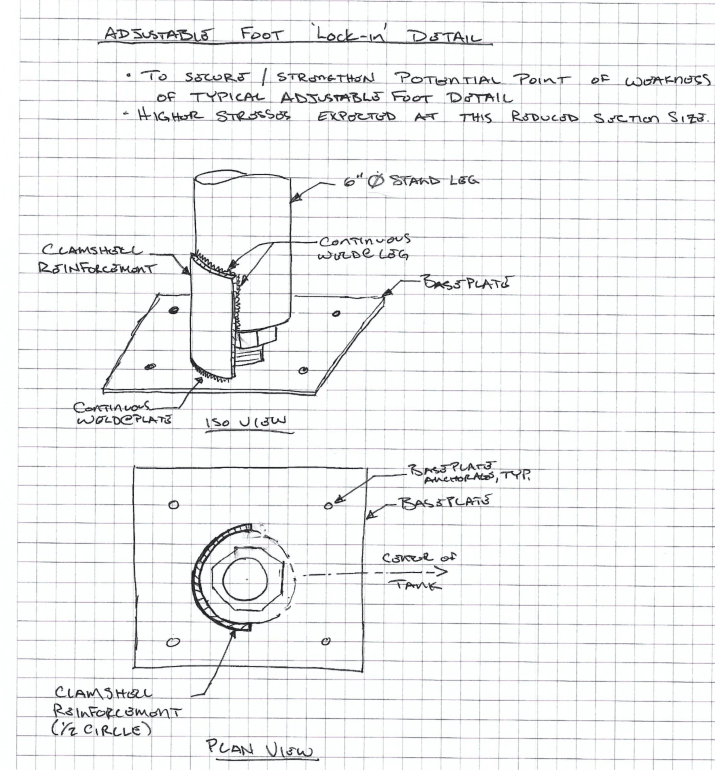 ADJUSTABLE FOOT 'Lock-in' DETAIL
• TO SECURE / STRENGTHEN POTENTIAL POINT OF WEAKNESS
OF TYPICAL ADJUSTABLE FOOT DETAIL
- HIGHER STRESSES EXPECTED AT THIS REDUCED SECTION SIZE.
6" Ø STAND LEG
CONTINUOUS
WELD@LEG
CLAMSHELL
REINFORCEMENT
BASEPLATE
CONTINUOUS
WELD@PLATE
ISO VIEW
BASEPLATE
ANCHORAGES, TYP.
BASEPLATE
CENTER OF
TANK
CLAMSHELL
REINFORCEMENT
(1/2 CIRCLE)
PLAN VIEW